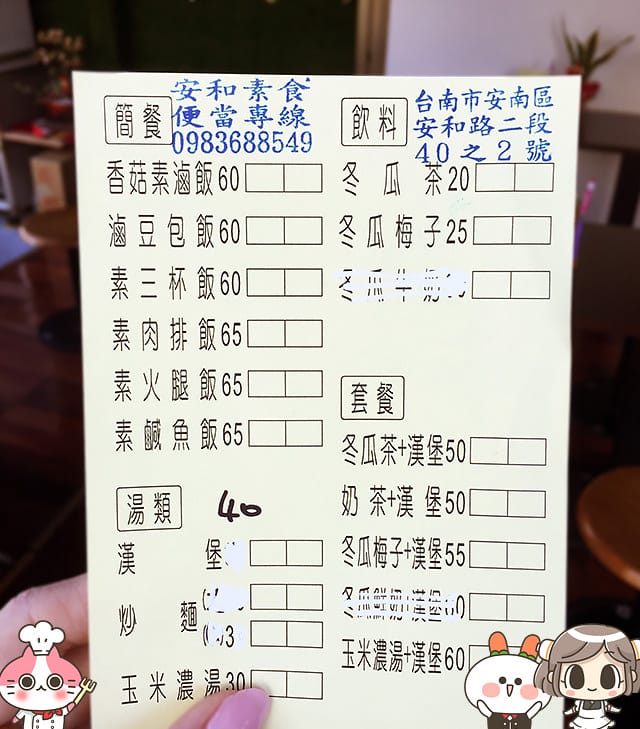 安和素食
便當專線
0983688549
簡餐
香菇素滷飯60
滷豆包飯60
素三杯飯60
素肉排飯65
素火腿飯65
素鹹魚飯65
湯類
40
漢堡
炒麵
玉米濃湯30
台南市安南區
安和路二段
40之2號
飲料
冬瓜茶20
冬瓜梅子25
冬瓜牛奶
套餐
冬瓜茶+漢堡50
奶茶+漢堡50
冬瓜梅子+漢堡55
冬瓜鮮奶+漢堡60
玉米濃湯+漢堡60